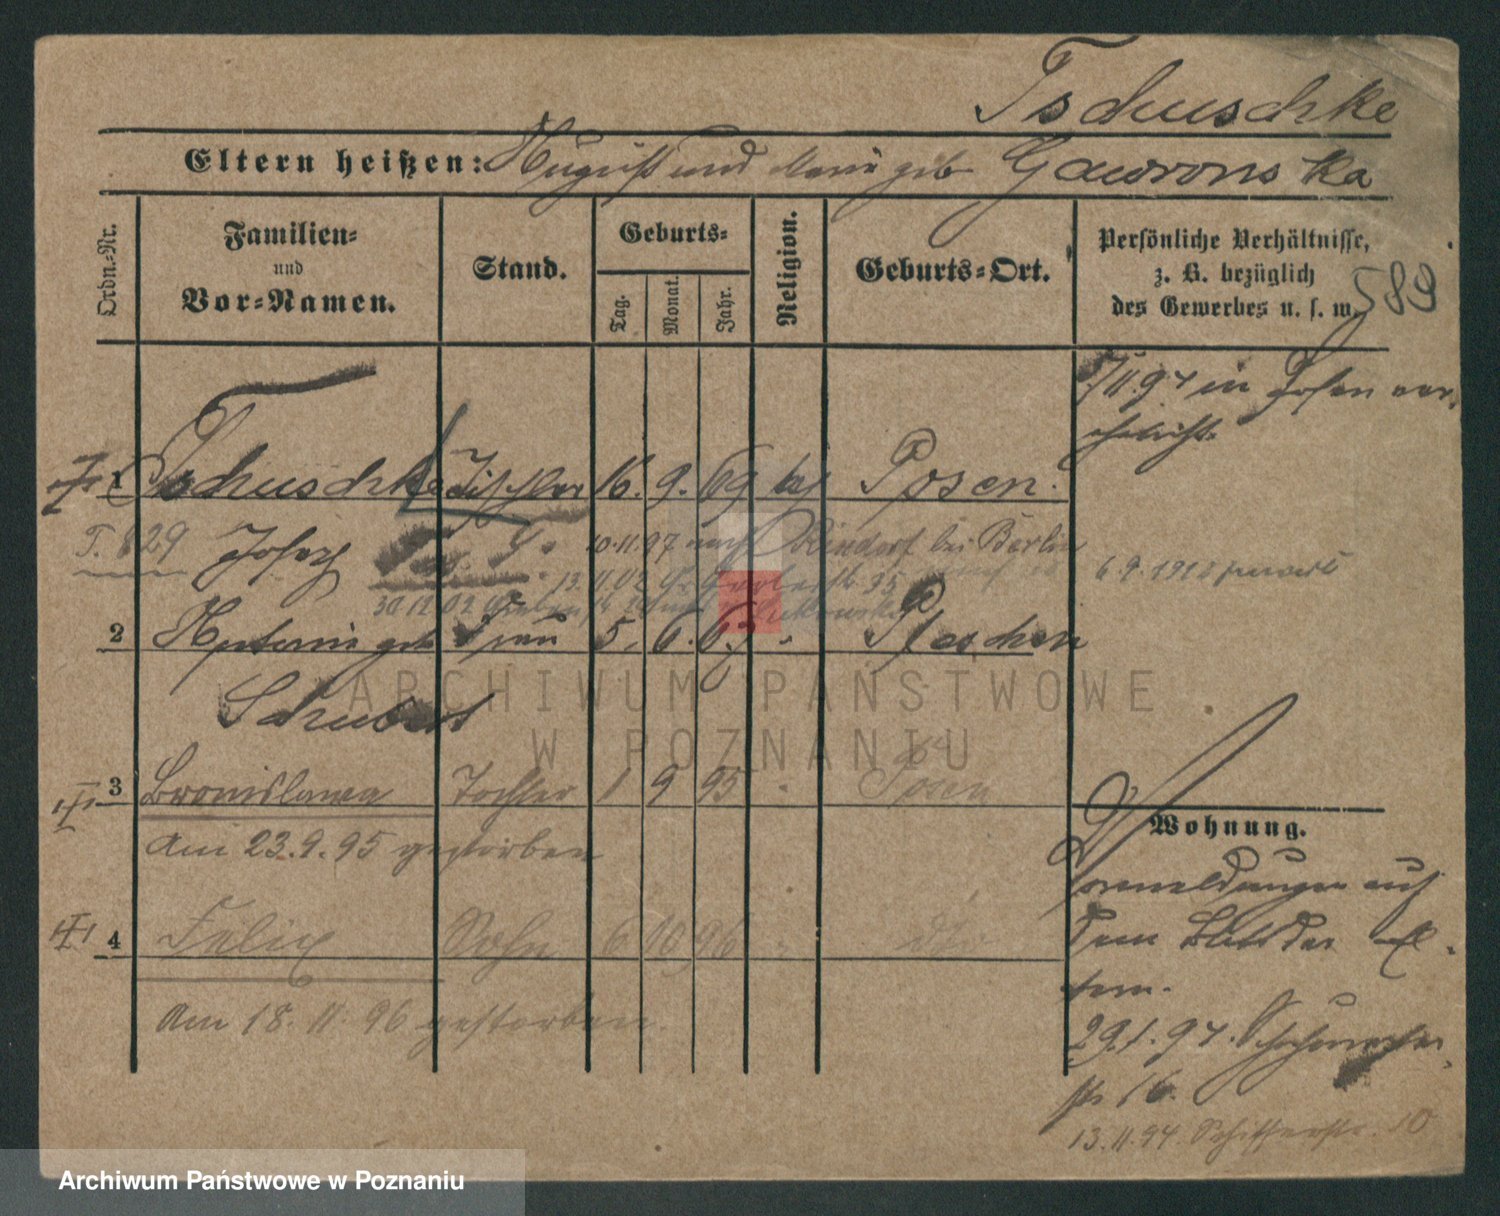 Tschuschke
Eltern heißen: August und Marie geb Gawronska
Ordn.-Nr.
Familien-
und
Vor-Namen.
Stand.
Geburts-
Tag.
Monat.
Jahr.
Religion.
Geburts-Ort.
Persönliche Verhältnisse,
z. B. bezüglich
des Gewerbes u. s. w.
589
/11.94 in Posen ver-
ehelicht.
1 Tschuschke Tischler 16. 9. 69 kath Posen.
T. 829 Josef
10.11.97 nach Rixdorf bei Berlin
13.11.02 35
30.12.02
6.9.1918
2 geb Frau 5. 6. 6 " Pleschen
Schubert
3 Bronislawa Tochter 1 9 95 " Posen
am 23.9.95 gestorben
4 Felix Sohn 6 10 96 " dto
am 18.11.96 gestorben.
Wohnung.
Vormeldungen auf
dem Blatt der El-
tern.
29.1.94.
str 16.
13.11.94 Schifferstr. 10
ARCHIWUM PAŃSTWOWE
W POZNANIU
Archiwum Państwowe w Poznaniu